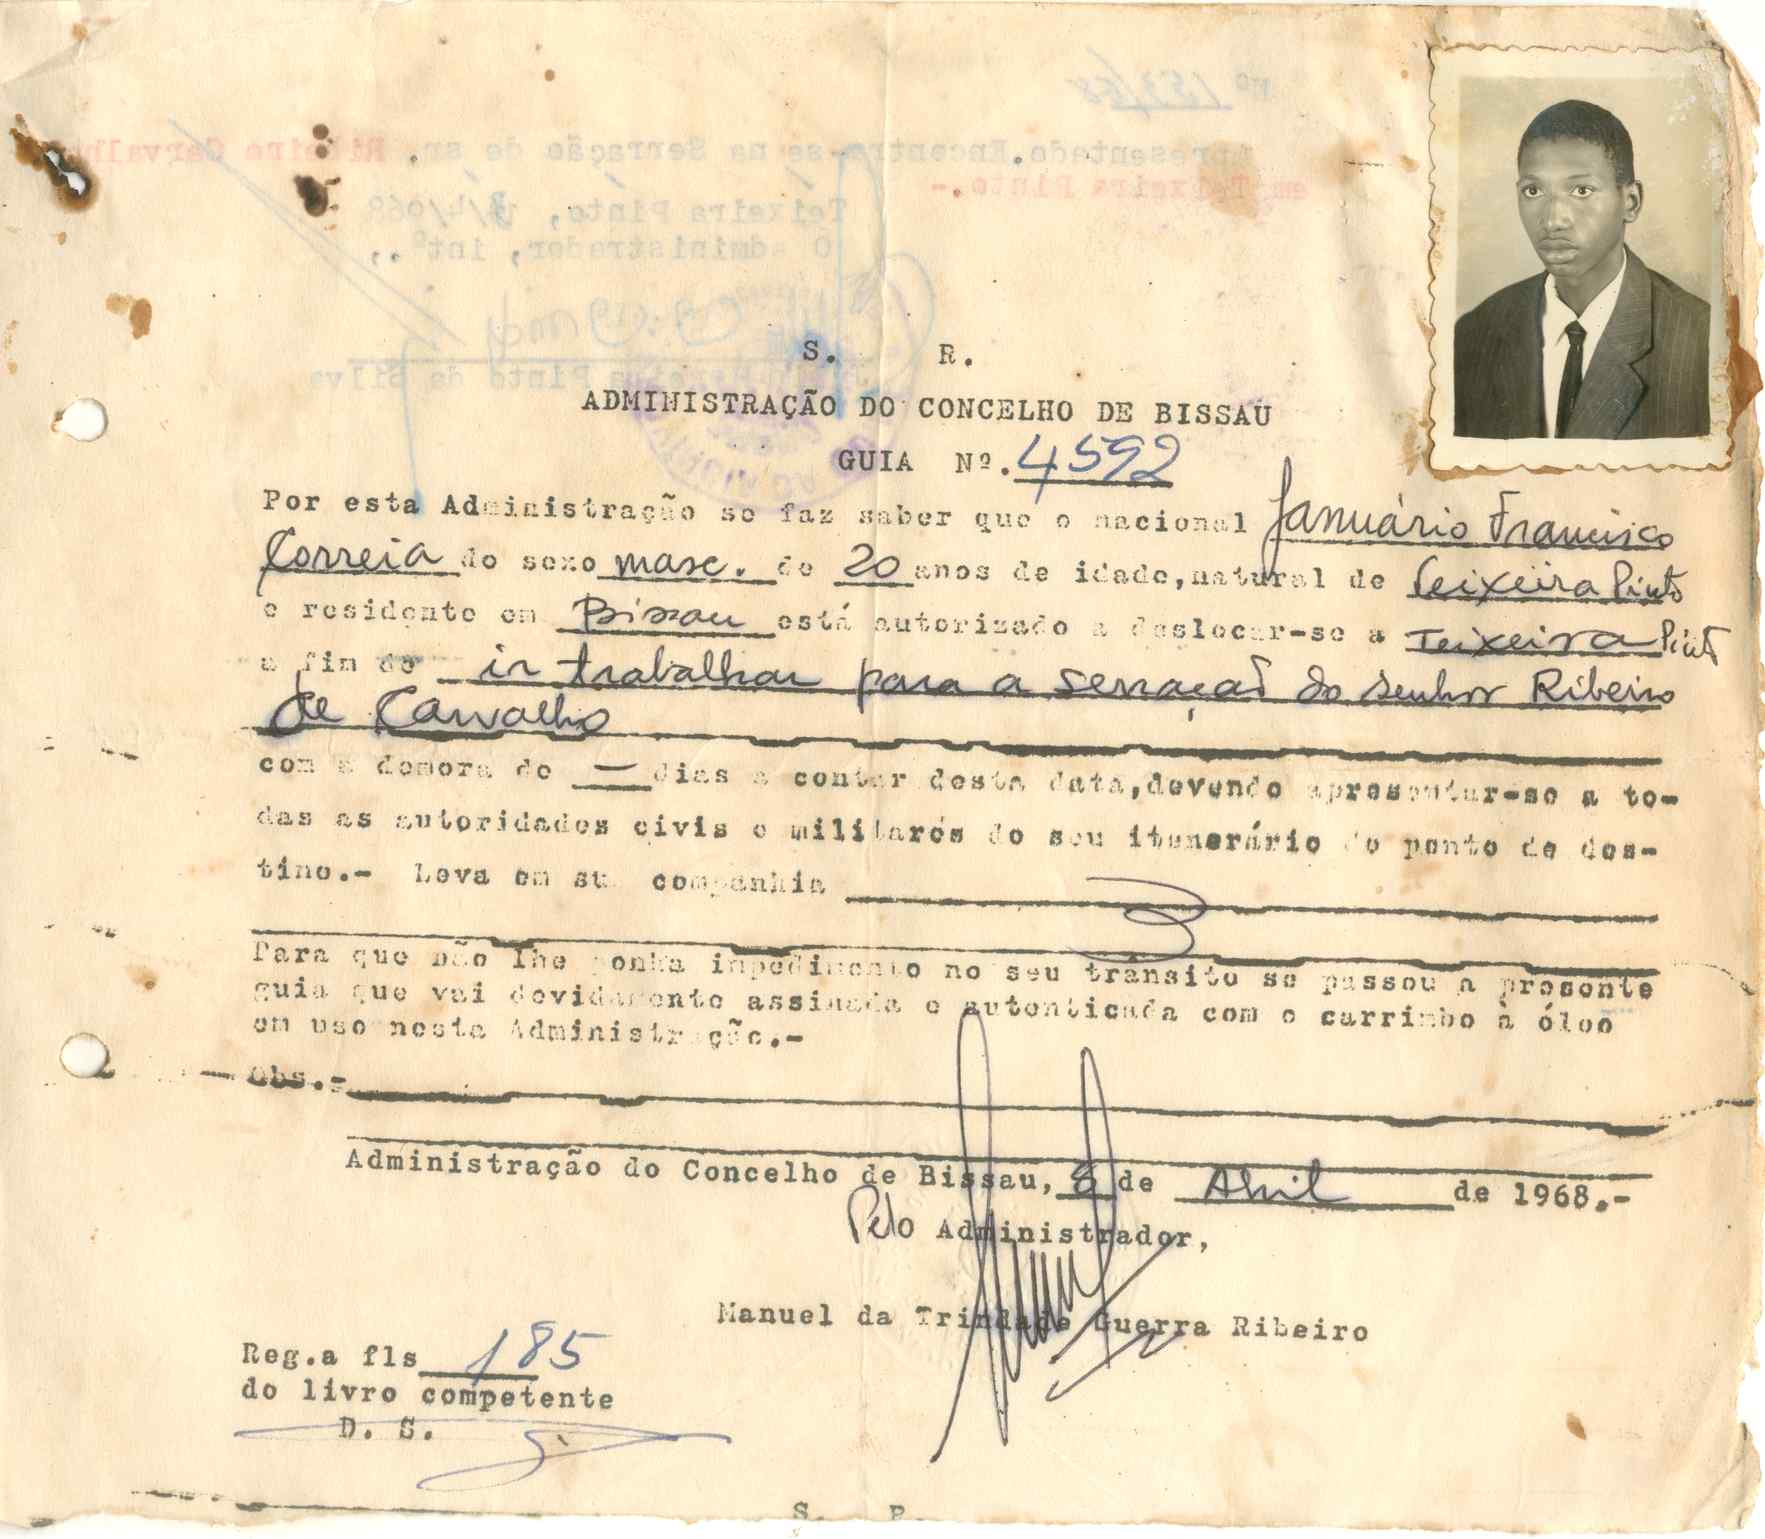 S. R.
ADMINISTRAÇÃO DO CONCELHO DE BISSAU
GUIA Nº. 4592
Por esta Administração se faz saber que o nacional Januário Francisco
Correia do sexo masc. de 20 anos de idade, natural de Teixeira Pinto
e residente em Bissau está autorizado a deslocar-se a Teixeira Pinto
a fim de ir trabalhar para a serração do senhor Ribeiro
de Carvalho
com a demora de — dias a contar desta data, devendo apresentar-se a to-
das as autoridades civis e militares do seu itenerário do ponto de des-
tino.- Leva em sua companhia
Para que não lhe ponha impedimento no seu trânsito se passou a presente
guia que vai devidamente assinada e autenticada com o carrimbo à óleo
em uso nesta Administração.-
Obs.-
Administração do Concelho de Bissau, de Abril de 1968.-
Pelo Administrador,
Manuel da Trindade Guerra Ribeiro
Reg.a fls 185
do livro competente
D. S.
S. R.